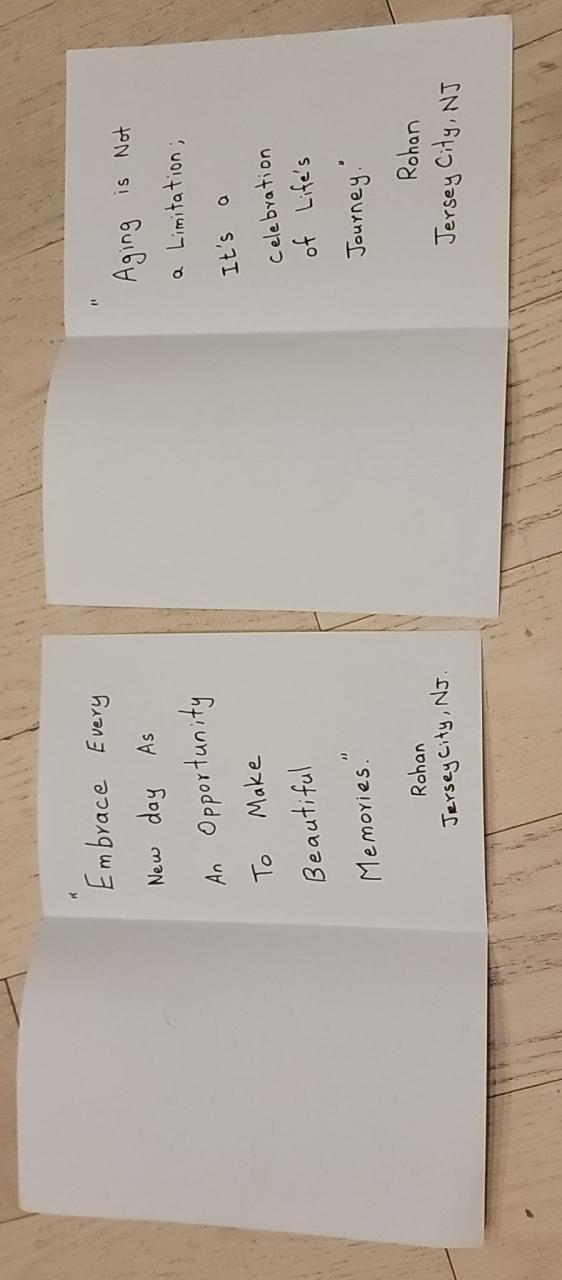 "
Embrace Every
New day As
An Opportunity
To Make
Beautiful
Memories."
Rohan
Jersey City, NJ.
"
Aging is Not
a Limitation;
It's a
Celebration
of Life's
Journey."
Rohan
Jersey City, NJ